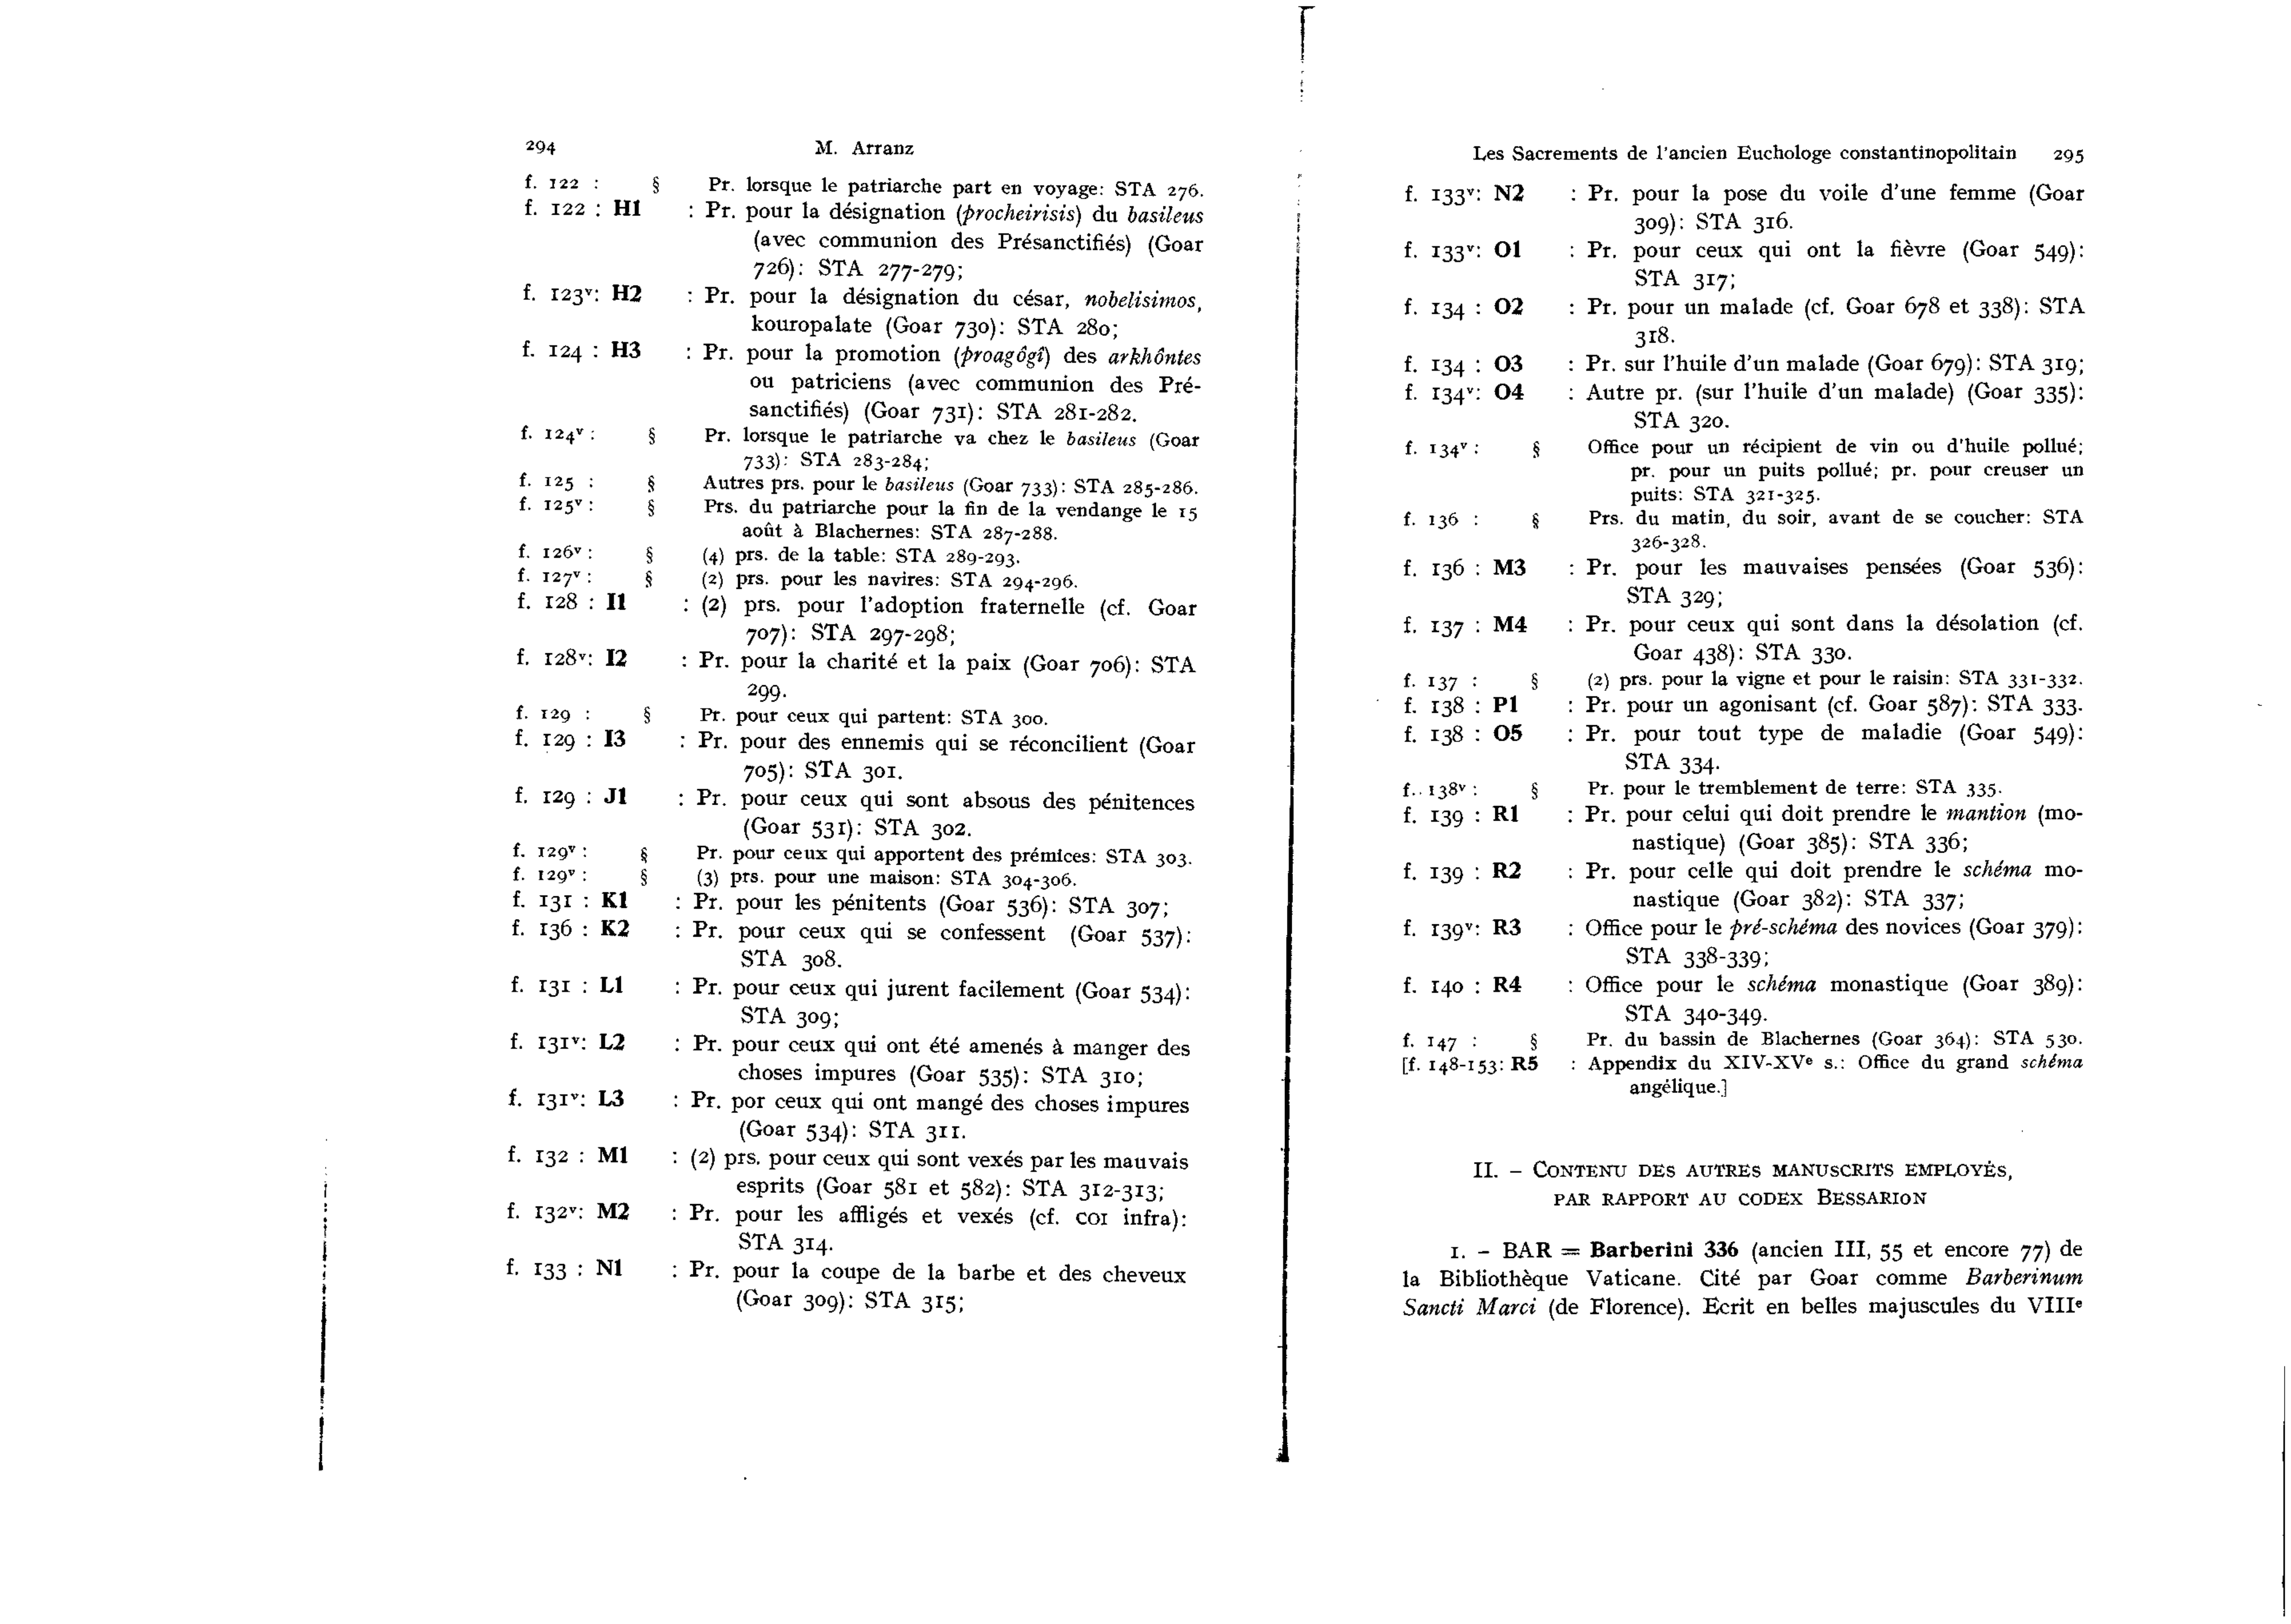 294 M. Arranz
f. 122 : § Pr. lorsque le patriarche part en voyage: STA 276.
f. 122 : H1 : Pr. pour la désignation (procheirisis) du basileus
(avec communion des Présanctifiés) (Goar
726): STA 277-279;
f. 123v: H2 : Pr. pour la désignation du césar, nobelisimos,
kouropalate (Goar 730): STA 280;
f. 124 : H3 : Pr. pour la promotion (proagôgî) des arkhôntes
ou patriciens (avec communion des Pré-
sanctifiés) (Goar 731): STA 281-282.
f. 124v : § Pr. lorsque le patriarche va chez le basileus (Goar
733): STA 283-284;
f. 125 : § Autres prs. pour le basileus (Goar 733): STA 285-286.
f. 125v : § Prs. du patriarche pour la fin de la vendange le 15
août à Blachernes: STA 287-288.
f. 126v : § (4) prs. de la table: STA 289-293.
f. 127v : § (2) prs. pour les navires: STA 294-296.
f. 128 : I1 : (2) prs. pour l'adoption fraternelle (cf. Goar
707): STA 297-298;
f. 128v: I2 : Pr. pour la charité et la paix (Goar 706): STA
299.
f. 129 : § Pr. pour ceux qui partent: STA 300.
f. 129 : I3 : Pr. pour des ennemis qui se réconcilient (Goar
705): STA 301.
f. 129 : J1 : Pr. pour ceux qui sont absous des pénitences
(Goar 531): STA 302.
f. 129v : § Pr. pour ceux qui apportent des prémices: STA 303.
f. 129v : § (3) prs. pour une maison: STA 304-306.
f. 131 : K1 : Pr. pour les pénitents (Goar 536): STA 307;
f. 136 : K2 : Pr. pour ceux qui se confessent (Goar 537):
STA 308.
f. 131 : L1 : Pr. pour ceux qui jurent facilement (Goar 534):
STA 309;
f. 131v: L2 : Pr. pour ceux qui ont été amenés à manger des
choses impures (Goar 535): STA 310;
f. 131v: L3 : Pr. por ceux qui ont mangé des choses impures
(Goar 534): STA 311.
f. 132 : M1 : (2) prs. pour ceux qui sont vexés par les mauvais
esprits (Goar 581 et 582): STA 312-313;
f. 132v: M2 : Pr. pour les affligés et vexés (cf. COI infra):
STA 314.
f. 133 : N1 : Pr. pour la coupe de la barbe et des cheveux
(Goar 309): STA 315;
Les Sacrements de l'ancien Euchologe constantinopolitain 295
f. 133v: N2 : Pr. pour la pose du voile d'une femme (Goar
309): STA 316.
f. 133v: O1 : Pr. pour ceux qui ont la fièvre (Goar 549):
STA 317;
f. 134 : O2 : Pr. pour un malade (cf. Goar 678 et 338): STA
318.
f. 134 : O3 : Pr. sur l'huile d'un malade (Goar 679): STA 319;
f. 134v: O4 : Autre pr. (sur l'huile d'un malade) (Goar 335):
STA 320.
f. 134v : § Office pour un récipient de vin ou d'huile pollué;
pr. pour un puits pollué; pr. pour creuser un
puits: STA 321-325.
f. 136 : § Prs. du matin, du soir, avant de se coucher: STA
326-328.
f. 136 : M3 : Pr. pour les mauvaises pensées (Goar 536):
STA 329;
f. 137 : M4 : Pr. pour ceux qui sont dans la désolation (cf.
Goar 438): STA 330.
f. 137 : § (2) prs. pour la vigne et pour le raisin: STA 331-332.
f. 138 : P1 : Pr. pour un agonisant (cf. Goar 587): STA 333.
f. 138 : O5 : Pr. pour tout type de maladie (Goar 549):
STA 334.
f. 138v : § Pr. pour le tremblement de terre: STA 335.
f. 139 : R1 : Pr. pour celui qui doit prendre le mantion (mo-
nastique) (Goar 385): STA 336;
f. 139 : R2 : Pr. pour celle qui doit prendre le schéma mo-
nastique (Goar 382): STA 337;
f. 139v: R3 : Office pour le pré-schéma des novices (Goar 379):
STA 338-339;
f. 140 : R4 : Office pour le schéma monastique (Goar 389):
STA 340-349.
f. 147 : § Pr. du bassin de Blachernes (Goar 364): STA 530.
[f. 148-153: R5 : Appendix du XIV-XVe s.: Office du grand schéma
angélique.]
II. – CONTENU DES AUTRES MANUSCRITS EMPLOYÉS,
PAR RAPPORT AU CODEX BESSARION
1. – BAR = Barberini 336 (ancien III, 55 et encore 77) de
la Bibliothèque Vaticane. Cité par Goar comme Barberinum
Sancti Marci (de Florence). Ecrit en belles majuscules du VIIIe